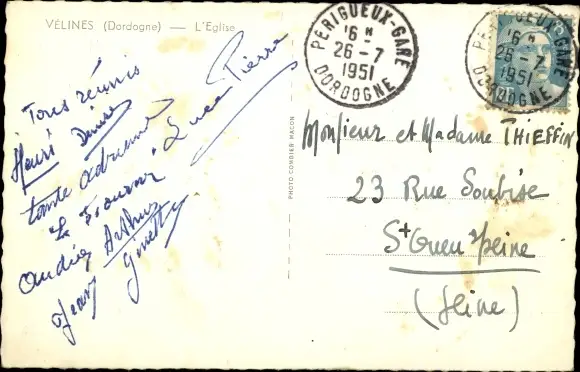 VÉLINES (Dordogne) — L'Eglise
Tous réunis
Henri Denise
tante Adrienne
Luce Pierre
Andrée Arthur
Jean Ginette
PHOTO-COMBIER MACON
PÉRIGUEUX-GARE
16 H
26-7
1951
DORDOGNE
PÉRIGUEUX-GARE
16 H
26-7
1951
DORDOGNE
Monsieur et Madame THIEFFIN
23 Rue Soubise
St Ouen s/Seine
(Seine)